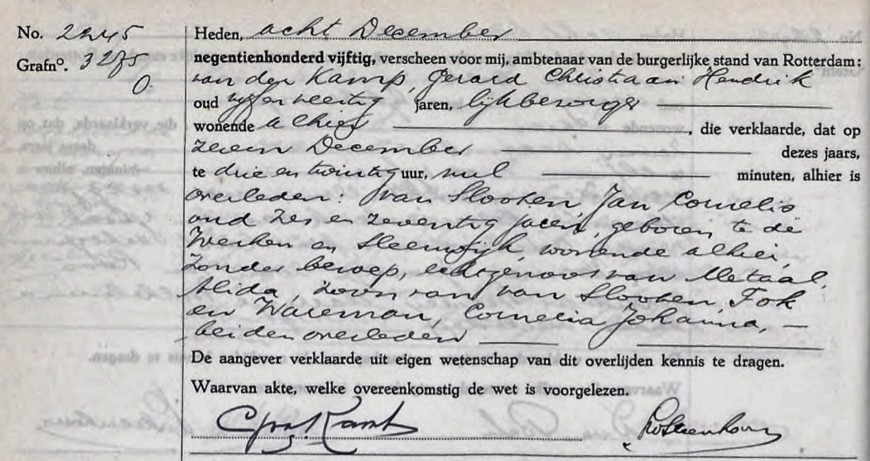 No. 2245
Grafno. 3275
O.
Heden, acht December
negentienhonderd vijftig, verscheen voor mij, ambtenaar van de burgerlijke stand van Rotterdam:
van der Kamp, Gerard Christiaan Hendrik
oud vijf en veertig jaren, lijkbezorger
wonende alhier, die verklaarde, dat op
zeven December dezes jaars,
te drie en twintig uur, nul minuten, alhier is
overleden: van Slooten, Jan Cornelis
oud zes en zeventig jaren, geboren te de
Werken en Sleeuwijk, wonende alhier,
zonder beroep, echtgenoot van Metaal,
Alida, zoon van van Slooten, Fok
en Wareman, Cornelia Johanna, —
beiden overleden
De aangever verklaarde uit eigen wetenschap van dit overlijden kennis te dragen.
Waarvan akte, welke overeenkomstig de wet is voorgelezen.